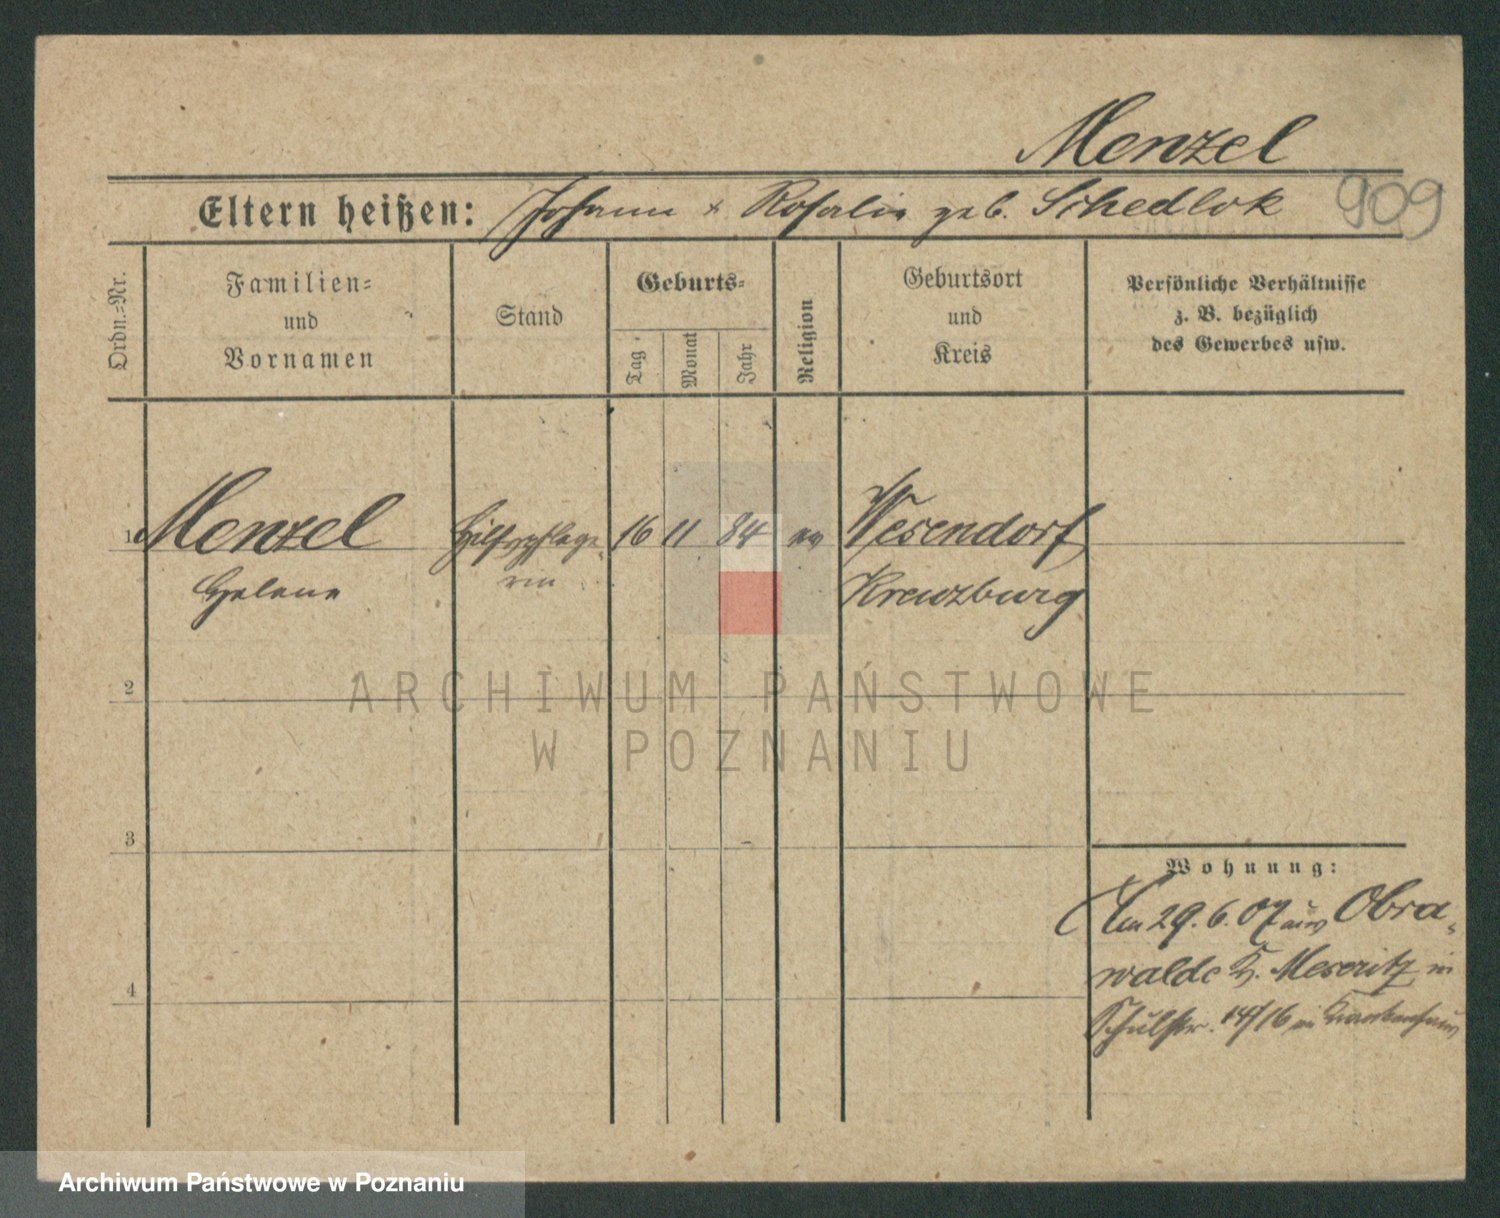 Menzel
Eltern heißen: Johann & Rosalie geb. Schedlok
909
Ordn.-Nr.
Familien-
und
Vornamen
Stand
Geburts-
Tag
Monat
Jahr
Religion
Geburtsort
und
Kreis
Persönliche Verhältnisse
z. B. bezüglich
des Gewerbes usw.
1 Menzel Hilfspflege- 16 11 84 ev Wesendorf
Helene rin Kreuzburg
2
ARCHIWUM PAŃSTWOWE
W POZNANIU
3
Wohnung:
Am 29.6.07 aus Obra-
walde K. Meseritz in
4
Schulstr. 14/16 im Krankenhaus
Archiwum Państwowe w Poznaniu